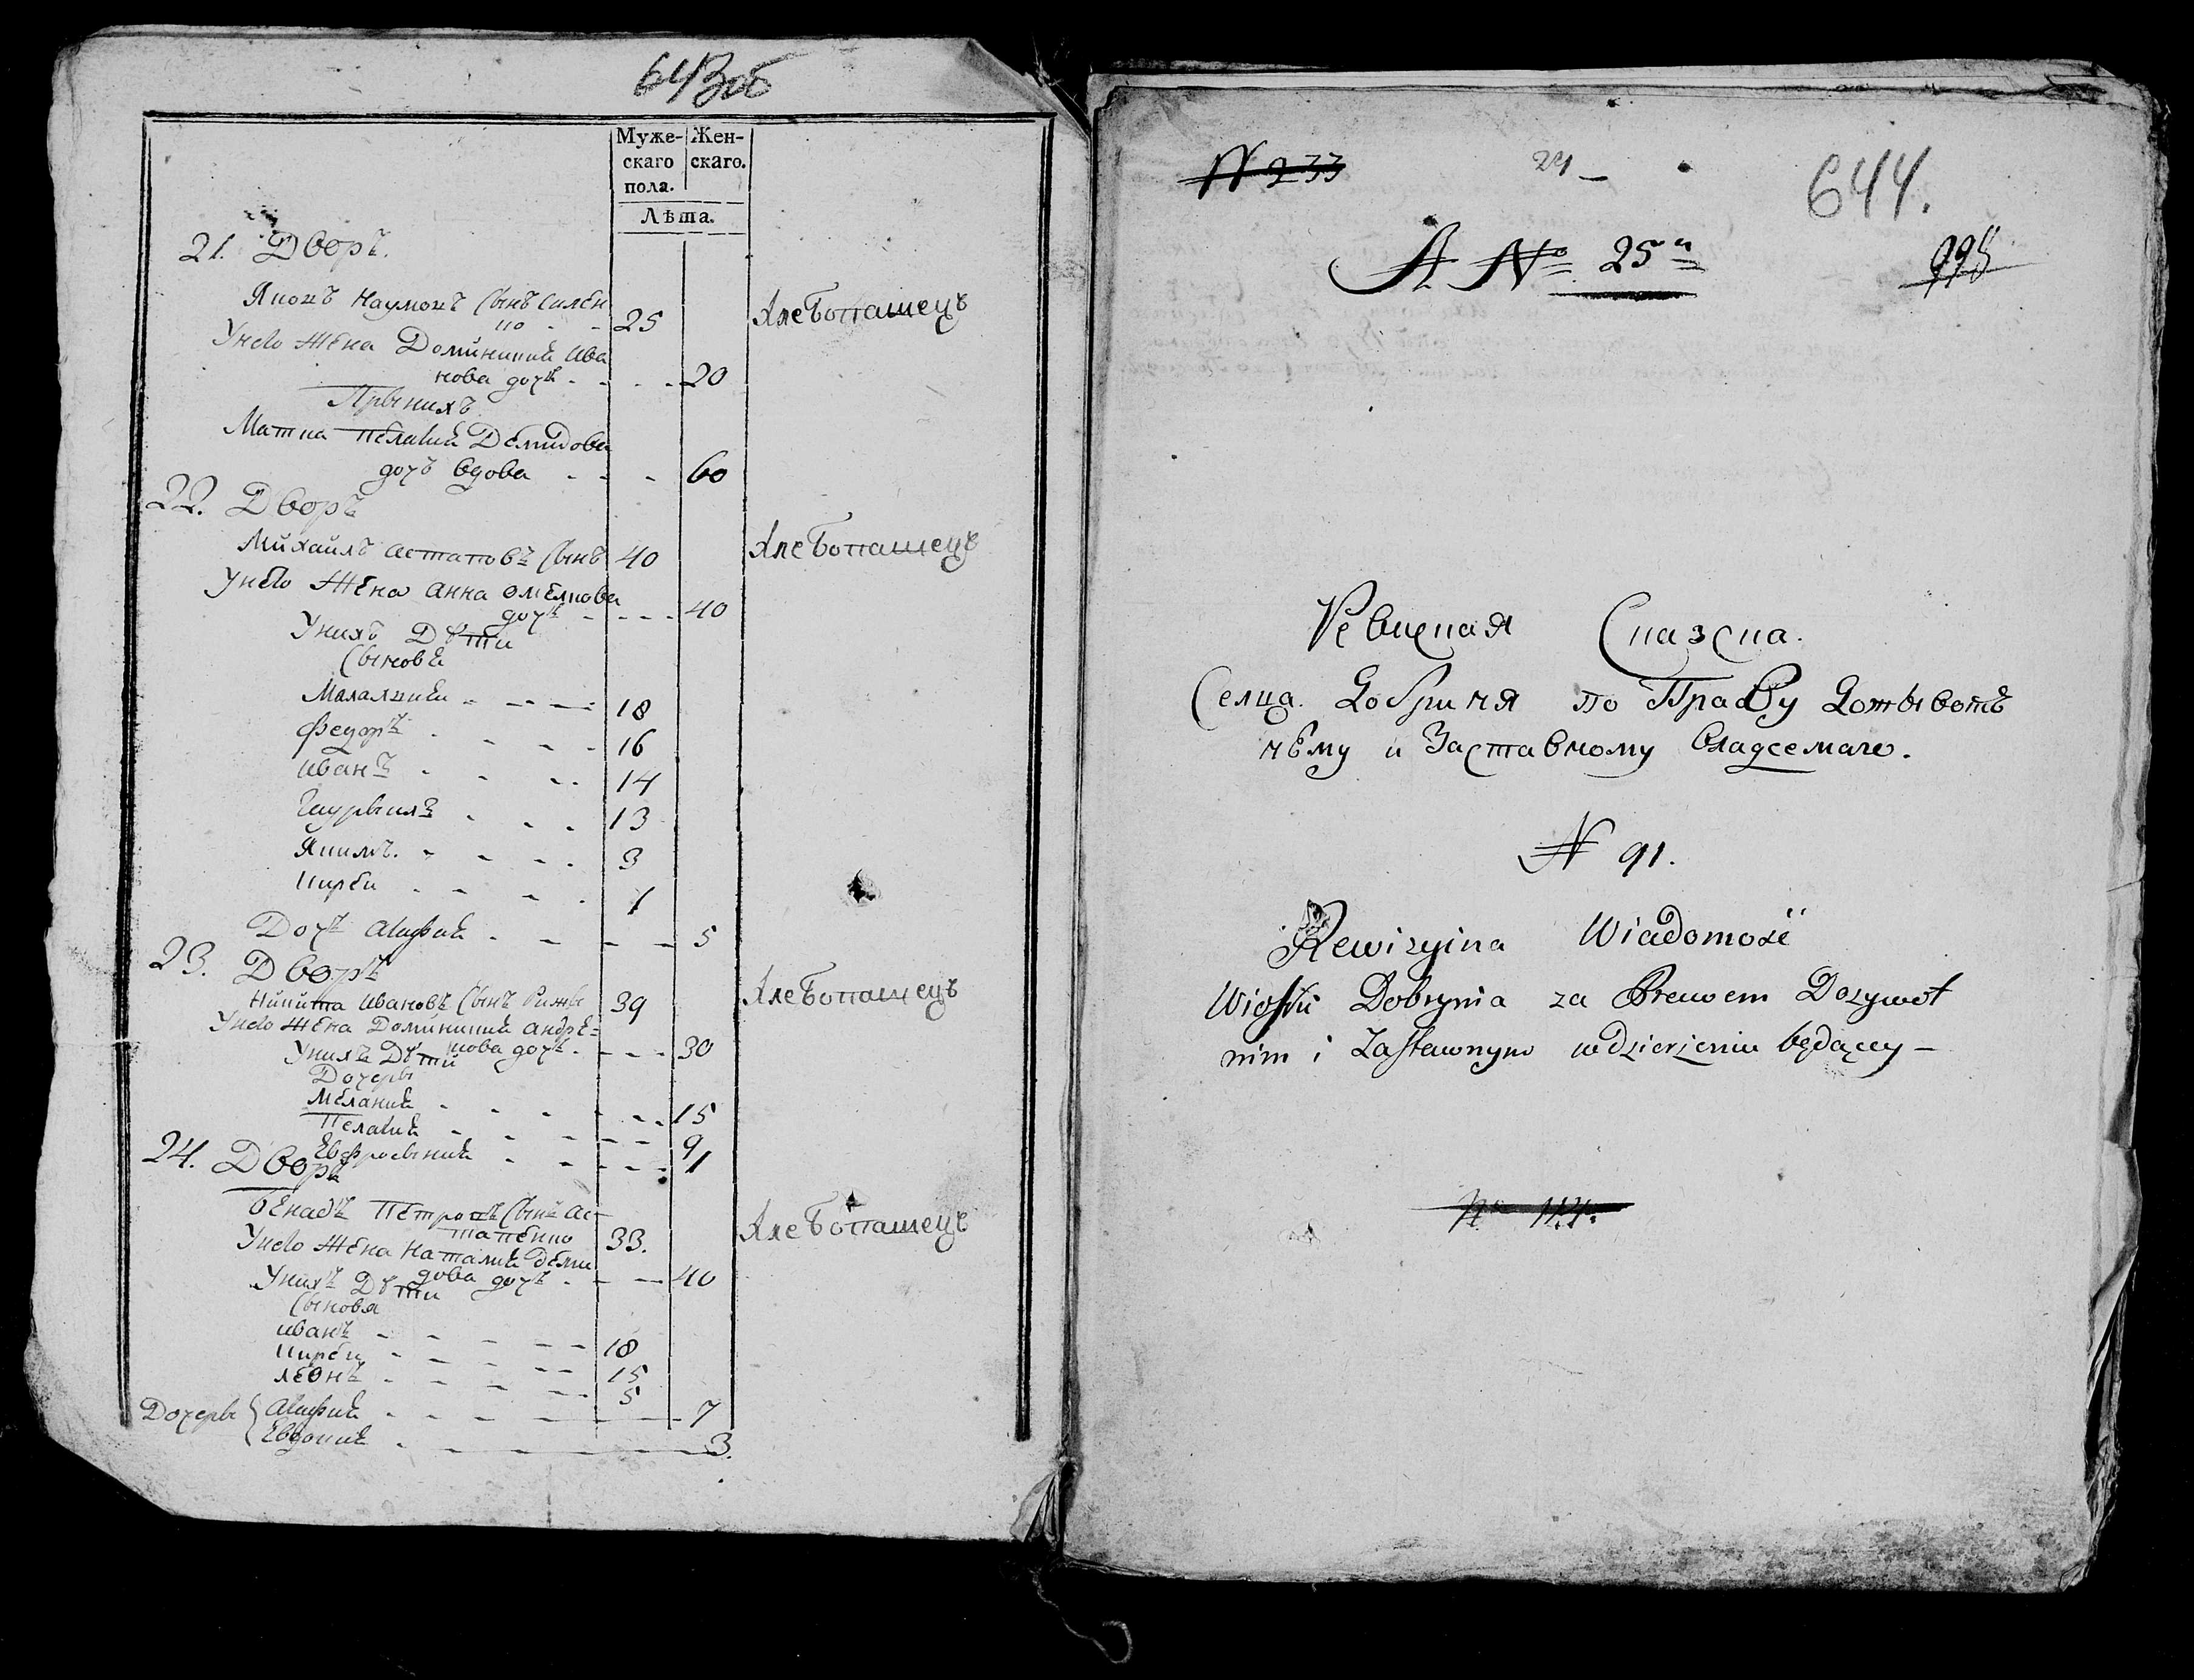 643об
Муже- Жен-
скаго скаго.
пола.
Лѣта.
21. Дворъ.
Якокъ Наумокъ Сынъ Силен
ко - - 25 Хлебопашецъ
Унево Жена Доминикия Ива
нова дочь - - - - 20
Прыникъ
Матка Пелагия Демидова
дочъ вдова - - - 60
22. Дворъ
Михайлъ Астаповъ Сынъ 40 Хлебопашецъ
Унево Жена Анна Омелкова
дочь - - - - 40
Унихъ Дѣти
Сыновя
Малахъ - - - - 18
Федоръ - - - - 16
Иванъ - - - - 14
Гаурыилъ - - - 13
Якимъ. - - - - 3
Кирей - - - - 1
Дочь Агафия - - - - 5
23. Дворъ
Никита Ивановъ Сынъ 39 Хлебопашецъ
Унево Жена Доминикия Андрѣ=
кова дочь. - - - 30
Унихъ Дѣти
Дочеры
Мелания - - - - - - 15
Пелагия - - - - - - 9
Евфросыния - - - - - - 1
24. Дворъ
Бенадъ Петрокъ Сынъ Ас-
тапенко 33. Хлебопашецъ
Унево Жена Наталия Деми
дова дочь - - - 40
Унихъ Дѣти
Сыновя
Иванъ - - - - - - 18
Кирей - - - - - - 15
Леонъ - - - - - - 5
Дочеры { Агафия - - - - - - 7
Евдокия - - - - - - 3.
N 233 24 644.
A No 25
995
Ревиская Сказка.
Селца. Добриня по Праву Дотывот
нѣму и Заставному Владеемаго.
N 91.
Rewizyina Wiadomosć
Wioski Dobrynia za Prawem Dozywot
nim i Zastawnym w dzierzeniu będącey -